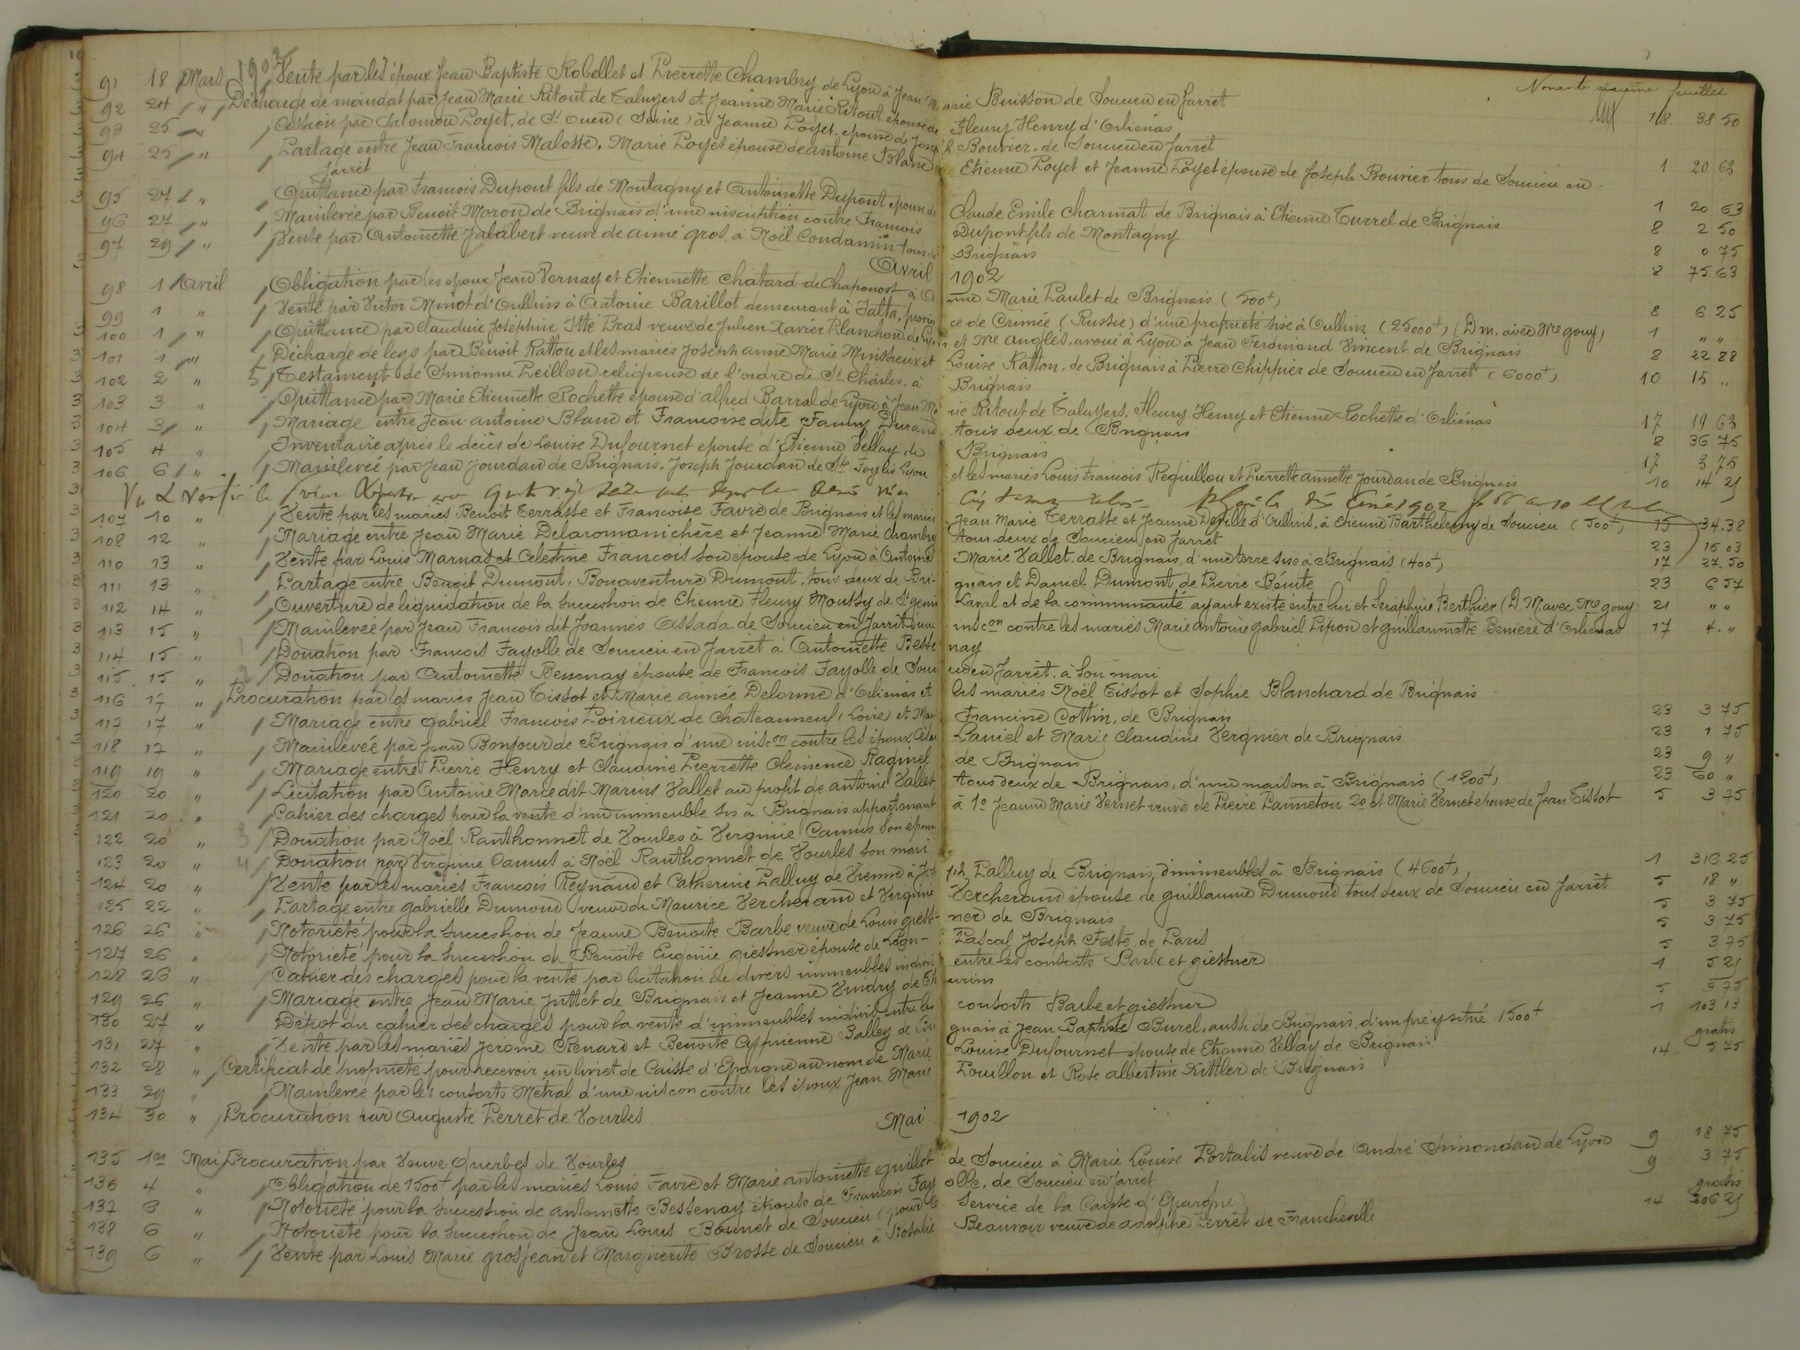 Nonante sixième feuillet
91 18 Mars 1902 Vente par les époux Jean Baptiste Robellet et Pierrette Chambry de Lyon à Jean Marie Buisson de Soucieu en Jarret 18 38 50
92 24 " Décharge de mandat par Jean Marie Ritout de Taluyers et Jeanne Marie Ritout épouse de Fleury Henry d'Orliénas
93 25 " Cession par Salomon Poyet, de St Ouen (Seine) à Jeanne Poyet, épouse de Joseph Bouvier, de Soucieu en Jarret 1 20 63
94 25 " Partage entre Jean François Malosse, Marie Poyet épouse de Antoine Blanc Etienne Poyet et Jeanne Poyet épouse de Joseph Bouvier tous de Soucieu en
Jarret 1 20 63
95 27 " Quittance par François Dupont fils de Montagny et Antoinette Dupont épouse de Claude Emile Charmat de Brignais à Etienne Turrel de Brignais 8 2 50
96 27 " Mainlevée par Benoit Moron de Brignais d'une inscription contre François Dupont fils de Montagny 8 0 75
97 29 " Vente par Antoinette Jalabert veuve de aimé gros, à Noël Condamin tous de Brignais 8 75 63
Avril 1902
98 1 Avril Obligation par les époux Jean Vernay et Etiennette Chatard de Chaponost à Marie Paulet de Brignais (500f) 8 6 25
99 1 " Vente par Victor Minot d'Oullins à Antoine Barillot demeurant à Jalta, province de Crimée (Russie) d'une propriété sise à Oullins (25000f) (Dm. avec Me gouy) 1 " "
100 1 " Quittance par Claudine Joséphine Pras veuve de Julien Xavier Blanchon, de Lyon et Me Anglès, avoué à Lyon à Jean Ferdinand Vincent de Brignais 8 22 88
101 1 " Décharge de legs par Benoit Ratton et les mariés Joseph anne Marie et Louise Ratton, de Brignais à Pierre Chippier de Soucieu en Jarret (6000f) 10 15 "
102 2 " Testament de Simionne Peillon religieuse de l'ordre de St Charles, à Brignais
103 3 " Quittance par Marie Etiennette Rochette épouse d'alfred Barral de Lyon à Jean Marie Ritout de Taluyers, Fleury Henry et Etienne Rochette d'Orliénas 17 19 63
104 3 " Mariage entre Jean antoine Blanc et Françoise dite Fanny Durand tous deux de Brignais 8 36 75
105 4 " Inventaire après le décès de Louise Dufournet épouse d'Etienne Vellay de Brignais 17 3 75
106 6 " Mainlevée par Jean Jourdan de Brignais, Joseph Jourdan de Ste Foy lès Lyon et les mariés Louis François Requillon et Pierrette annette Jourdan de Brignais 10 14 21
107 10 " Vente par les mariés Benoit Terrasse et Françoise Favre de Brignais et les mariés Jean Marie Terrasse et Jeanne Deville d'Oullins, à Etienne Barthélemy de Soucieu (500f) 15 34.38
108 12 " Mariage entre Jean Marie Delaromanichère et Jeanne Marie Chambry tous deux de Soucieu en Jarret 23 15 03
110 13 " Vente par Louis Marnas et Célestine François son épouse de Lyon à Antoine Marie Vallet, de Brignais, d'une terre sise à Brignais (400f) 17 27.50
111 13 " Partage entre Benoit Dumont, Bonaventure Dumont, tous deux de Brignais et Daniel Dumont de Pierre Bénite 23 6 57
112 14 " Ouverture de liquidation de la succession de Etienne Fleury Moussy de St genis Laval et de la communauté ayant existé entre lui et Séraphine Berthier (D. M. avec Me gouy) 21 " "
113 15 " Mainlevée par Jean François dit Joannès Assada de Soucieu en Jarret d'une inscon contre les mariés Marie antoine gabriel Pipon et guillaumette Benière d'Orliénas 17 4. "
114 15 " Donation par François Fayolle de Soucieu en Jarret à Antoinette Bessenay
115 15 " Donation par Antoinette Bessenay épouse de François Fayolle de Soucieu en Jarret, à son mari
116 17 " Procuration par les mariés Jean Tissot et Marie année Delorme d'Orliénas et les mariés Noël Tissot et Sophie Blanchard de Brignais 23 3 75
117 17 " Mariage entre Gabriel François Poirieux de Châteauneuf (Loire) et Francine Cottin, de Brignais 23 1 75
118 17 " Mainlevée par Jean Bonjour de Brignais d'une inscon contre les époux Laniel et Marie Claudine Vergnier de Brignais 23 9 "
119 19 " Mariage entre Pierre Henry et Claudine Pierrette Clémence Raginel de Brignais 23 60 "
120 20 " Licitation par Antoine Marie dit Marius Vallet au profit de antoine Vallet tous deux de Brignais, d'une maison à Brignais (1200f) 5 3 75
121 20 " Cahier des charges pour la vente d'un immeuble sis à Brignais appartenant à 1o Jeanne Marie Vernet veuve de Pierre Panneton 2o et Marie Vernet épouse de Jean Tissot
122 20 " Donation par Noël Ranthonnet de Vourles à Virginie Camus son épouse
123 20 " Donation par Virginie Camus à Noël Ranthonnet de Vourles son mari 1 316 25
124 20 " Vente par les mariés François Reynaud et Catherine Palluy de Vienne à Joseph Palluy de Brignais, d'immeubles à Brignais (4600f) 5 18 "
125 22 " Partage entre gabrielle Dumond veuve de Maurice Vercherand et Virginie Vercherand épouse de guillaume Dumond tous deux de Soucieu en Jarret 5 3 75
126 26 " Notoriété pour la succession de Jeanne Benoite Barbe veuve de Louis giessner de Brignais 5 3 75
127 26 " Notoriété pour la succession de Benoite Eugénie giessner épouse de Léon Pascal Joseph Festé de Paris 5 3 75
128 26 " Cahier des charges pour la vente par licitation de divers immeubles indivis entre les consorts Barbe et giessner 1 5 21
129 26 " Mariage entre Jean Marie Juttet de Brignais et Jeanne Vindry de Thurins 5 3 75
130 27 " Dépôt du cahier des charges pour la vente d'immeubles indivis entre les consorts Barbe et giessner 1 103 13
131 27 " Vente par les mariés Jérome Renard et Benoite Cyprienne Balley de Brignais à Jean Baptiste Burel, aussi de Brignais, d'un pré y situé 1500f gratis
132 28 " Certificat de propriété pour recevoir un livret de Caisse d'Epargne au nom de Marie Louise Dufournet épouse de Etienne Vellay de Brignais 14 5 75
133 29 " Mainlevée par les consorts Métral d'une inscon contre les époux Jean Marie Pouillon et Rose albertine Rittler de Brignais
134 30 " Procuration par Auguste Perret de Vourles
Mai 1902
135 1er Mai Procuration par Veuve Querbes de Vourles 9 18 75
136 4 " Obligation de 1500f par les mariés Louis Favre et Marie antoinette Guillot de Soucieu à Marie Louise Portalis veuve de André Simondan de Lyon 9 3 75
137 3 " Notoriété pour la succession de antoinette Bessenay épouse de François Fayolle, de Soucieu en Jarret gratis
138 6 " Notoriété pour la succession de Jean Louis Bonnet de Soucieu (pour le Service de la Caisse d'Epargne 14 206 25
139 6 " Vente par Louis Marie grosjean et Marguerite Brosse de Soucieu à Rosalie Beauvoir veuve de adolphe Perret de Francheville